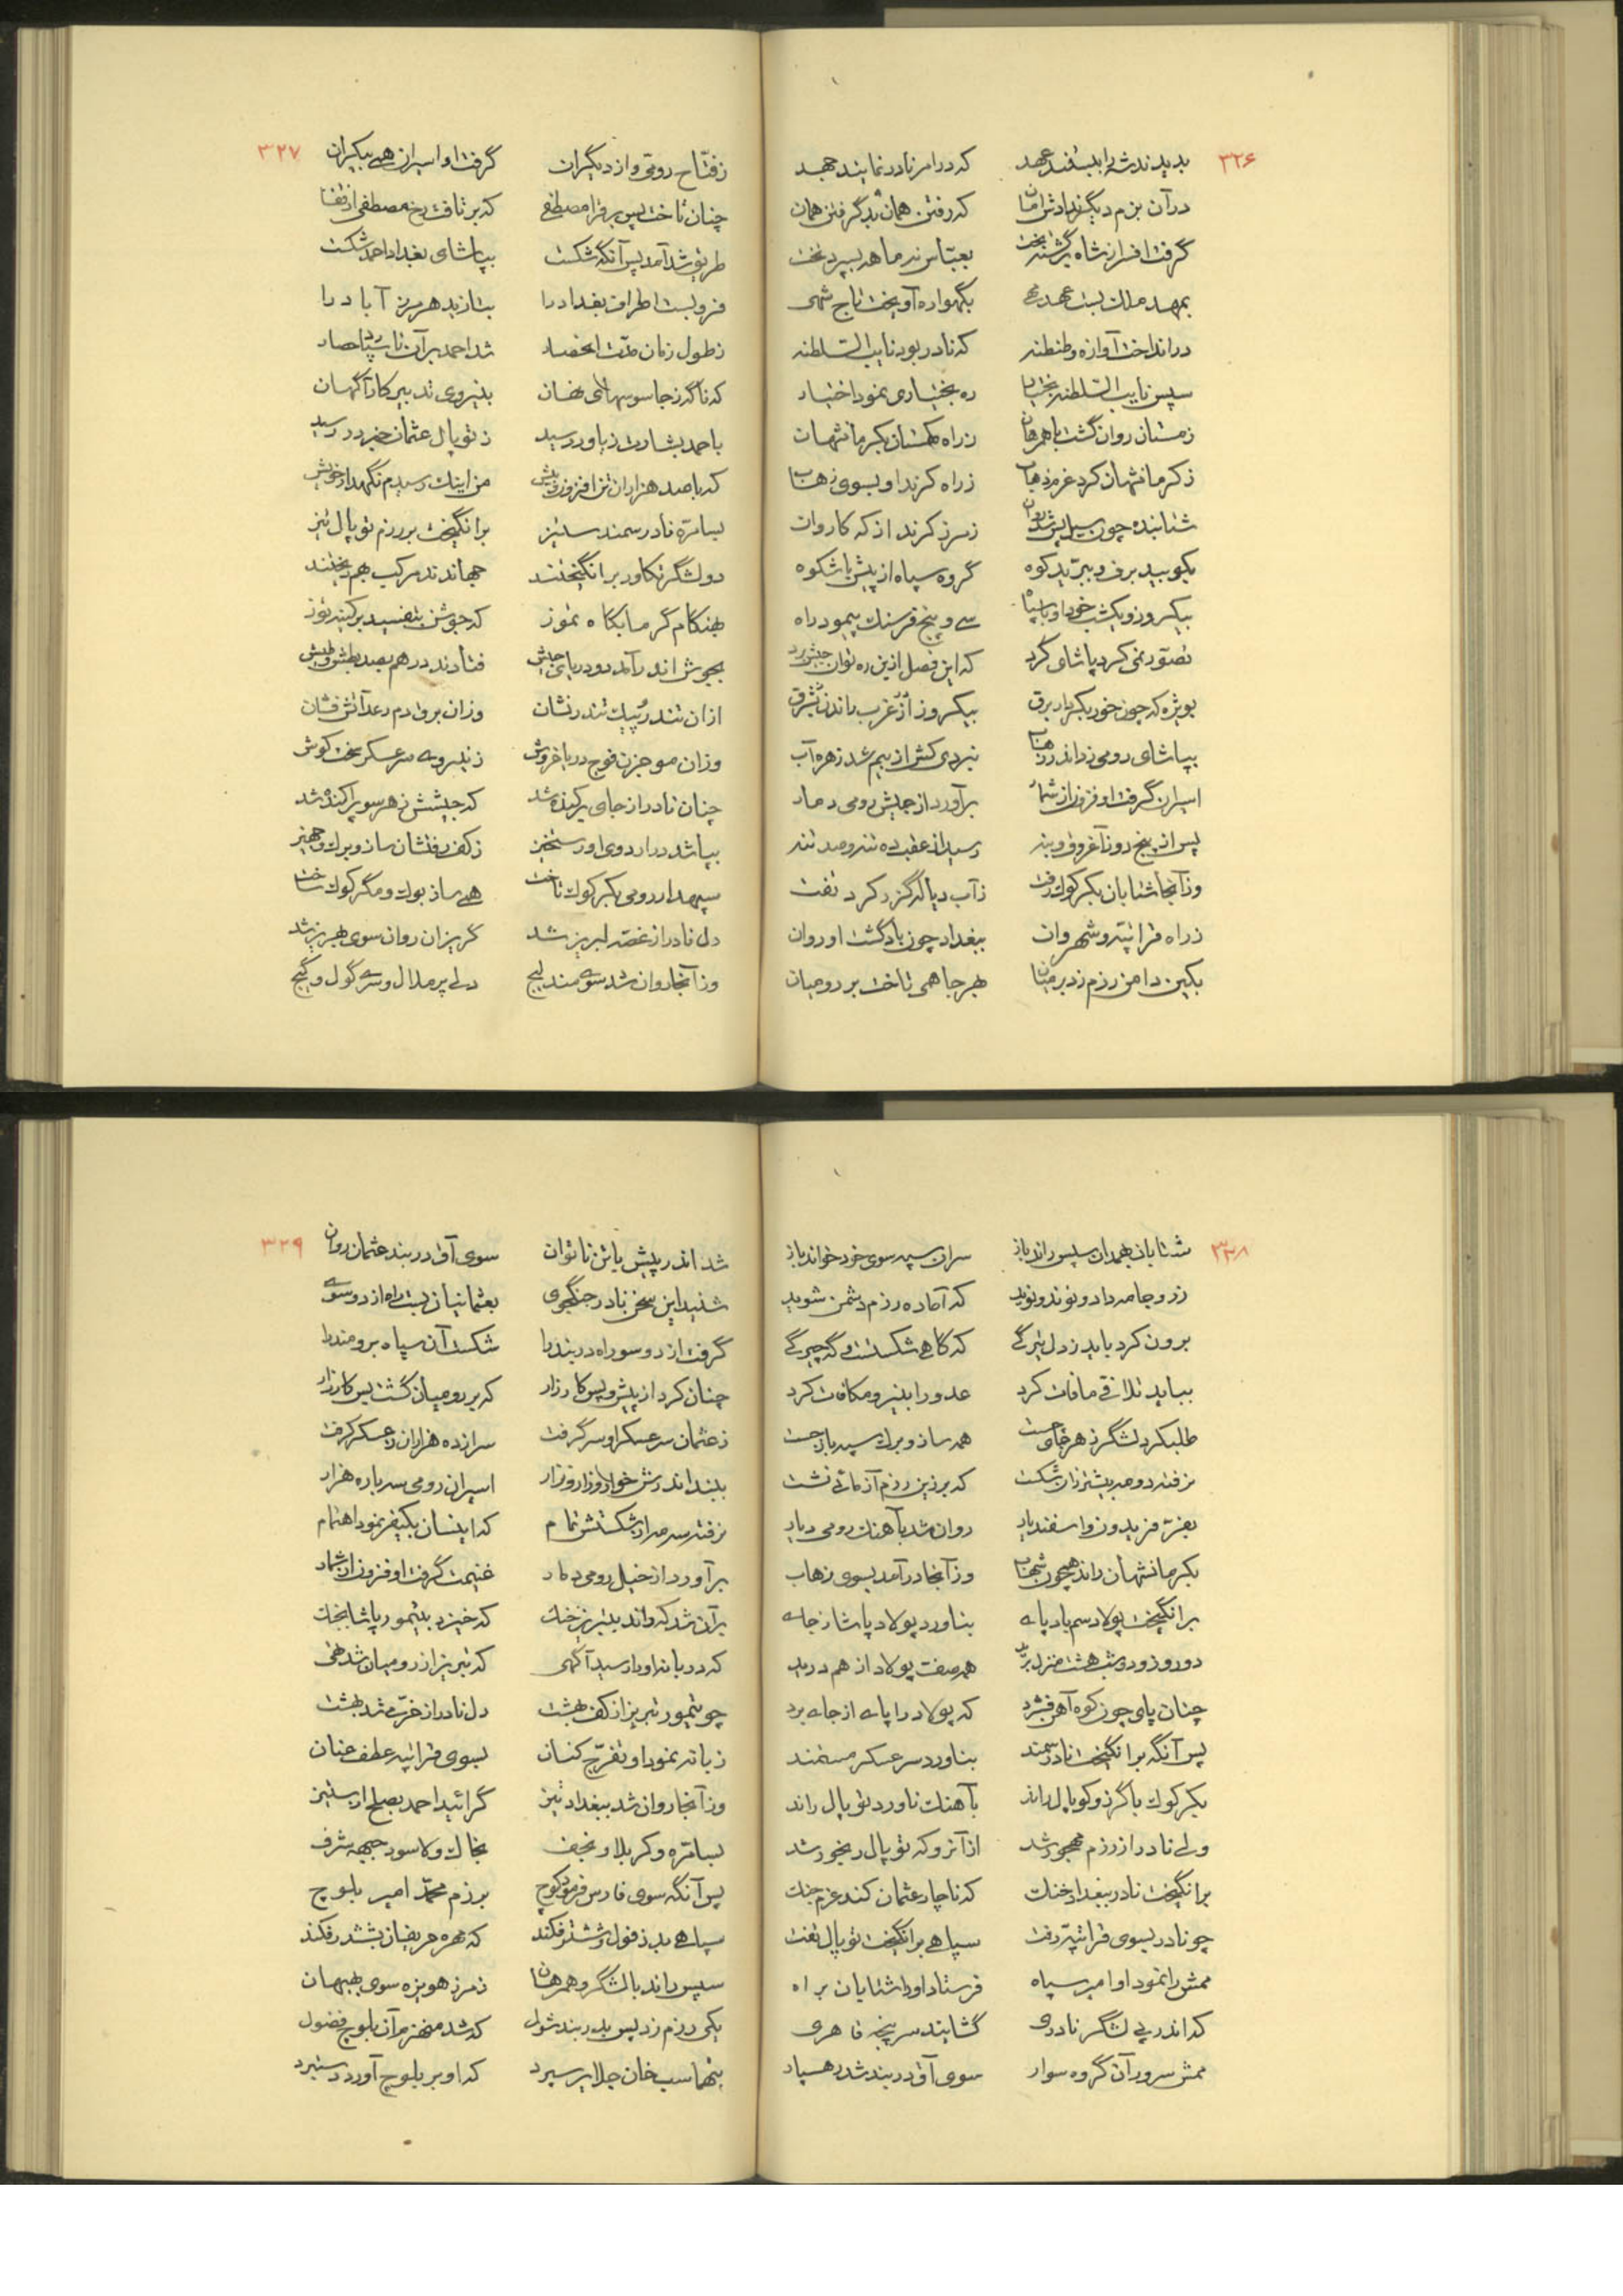 ۳۲۶
بدیدند شه را بلیفند عهد که در امر نادر نمایند جهد
در آن بزم دیگر ندادش امان که رفتن همان بد گرفتن همان
گرفت افسر از شاه برگشته بخت بعباس نه ماهه بسپرد تخت
بمهد ملک بست عهد بگهواره آویخت تاج شهی
در انداخت آوازه و طنطنه که نادر بود نایب السلطنه
سپس نایب السلطنه بختیار ره بختیاری نمود اختیار
زمستان روان گشت با همرهان ز راه کهستان بکرمانشهان
ز کرمانشهان کرد عزم ذهاب ز راه کرند او بسوی زهاب
شتابنده چون سیل پس شد روان ز مرز کرند از که کاروان
بکوبید برف و ببرید کوه گروه سپاه از پیش با شکوه
بیکروز و یکشب خود او با سپاه سی و پنج فرسنگ پیمود راه
تصور نمی کرد پاشای کرد که این فصل ازین ره توان جیش برد
بویژه که چون خور بکردار برق بیکروز از غرب راند بشرق
بپاشای رومی ز داند زهاب نبردی کش از بیم شد زهره آب
اسیران گرفت او فزون از شمار برآورد از جیش رومی دمار
پس از پنج روز آغروق و بنه رسید از عقب ده تنه و صد تنه
وز آنجا شتابان بکرکوک رفت ز آب دیاله گزر کرد تفت
ز راه قراتپه و شهروان ببغداد چون باد گشت او روان
بکین دامن رزم زد بر میان بهر جا همی تاخت بر رومیان
۳۲۷
ز فتاح رومی و از دیگران گرفت او اسیران همی بیکران
چنان تاخت پس بر قرا مصطفی که بر تافت رخ مصطفی از قفا
طریق شد آمد پس آنگه شکست بپاشای بغداد احمد شکست
فرو بست اطراف بغداد را بتازید هر مرز آباد را
ز طول زمان مدت انحصار شد احمد بر آن تا سپارد حصار
که ناگه ز جاسوسهای نهان بنیروی تدبیر کار آگهان
باحمد بشارت ز یاور رسید ز توپال عثمان خبر در رسید
که با صد هزاران تن افزون ز پیش من اینک رسیدم نگهدار خویش
بسامره نادر سمند ستیز برانگیخت بر رزم توپال تیز
دو لشگر تکاور برانگیختند جهاندند مرکب بهم ریختند
بهنگام گرما بگاه تموز که جوشن بتفسید بر کینه توز
بجوش اندر آمد دو دریای جیش فتادند در هم بصد بطش و طیش
از آن تندر پیک تندر نشان وزان برق دم رعد آتش فشان
وزان موجزن فوج دریا خروش ز نیروی سرعسکر سخت کوش
چنان نادر از جای برکنده شد که جیشش ز هر سو پراکنده شد
بپا شد در اردوی او رستخیز ز کف رفتشان ساز و برگ و جهیز
سپهدار رومی بکرکوک تاخت همی ساز بوک و مگر کوک ساخت
دل نادر از غصه لبریز شد گریزان روان سوی بهریز شد
وز آنجا روان شد سوی مندلیج دلی پر ملال و سری گول و گیج
۳۲۸
شتابان بهمدان سپس راند باز سران سپه سوی خود خواند باز
زر و جامه داد و نوند و نوید که آماده رزم دشمن شوید
برون کرد باید ز دل تیرگی که گاهی شکستست و گه چیرگی
بباید تلافی مافات کرد عدو را بنیرو مکافات کرد
طلبکرد لشگر ز هر جای جست همه ساز و برگ سپه باز جست
نرفته دو مه بیشتر زان شکست که بر زین رزم آزمائی نشست
بعز فریدون و اسفندیار روان شد بآهنگ رومی دیار
بکرمانشهان راند همچون شهاب وز آنجا در آمد بسوی زهاب
برانگیخت پولاد سم باد پای بناورد پولاد پاشا ز جای
دو روز و دو شب هشت منزل برید همه صفت پولاد از هم درید
چنان پای چون کوه آهن فشرد که پولاد را پای از جای برد
پس آنگه برانگیخت نادر سمند بناورد سرعسکر مستمند
بکرکوک با گرز و کوپال راند بآهنگ ناورد توپال راند
ولی نادر از رزم مهجور شد از آنرو که توپال رنجور شد
برانگیخت نادر ببغداد خنگ که ناچار عثمان کند عزم جنگ
چو نادر بسوی قراتپه رفت سپاهی برانگیخت توپال تفت
ممش را نمود او امیر سپاه فرستاد او را شتابان براه
که اندر پی لشگر نادری گشایند سر پنجه قاهری
ممش سرور آن گروه سوار سوی آق دربند شد رهسپار
۳۲۹
شد اندر پیش با تن ناتوان سوی آق دربند عثمان روان
شنید این سخن نادر جنگجوی بعثمانیان بست راه از دو سوی
گرفت از دو سو راه دربند را شکست آن سپاه برومند را
چنان کرد از پیش و پس کارزار که بر رومیان گشت پس کار زار
ز عثمان سرعسکر او سر گرفت سر از ده هزاران ز عسکر گرفت
ببند اندرش خوار و زار و نزار اسیران رومی سه باره هزار
نرفته سه مه از شکستش تمام که اینسان بکیفر نمود اهتمام
برآورد از خیل رومی دمار غنیمت گرفت او فزون از شمار
بر آن شد که راند بتبریز خنگ که خیزد بتیمور پاشا بجنگ
که در بانه او را رسید آگهی که تبریز از رومیان شد تهی
چو تیمور تبریز از کف بهشت دل نادر از خرمی شد بهشت
ز بانه نمود او تفرج کنان بسوی قراتپه عطف عنان
وز آنجا روان شد ببغداد نیز گرائید احمد بصلح از ستیز
بسامره و کربلا و نجف بخاک ولا سود جبهه شرف
پس آنگه سوی فارس فرمود کوچ برزم محمد امیر بلوچ
سپاهی بدزفول و ششتر فکند که مهره حریفان بششدر فکند
سپس راند با لشگر و همرهان ز مرز هویزه سوی بهبهان
یکی رزم زد پس بدربند شول که شد منهزم آن بلوچ فضول
بتهماسب خان جلایر سپرد که او بر بلوچ آورد دستبرد